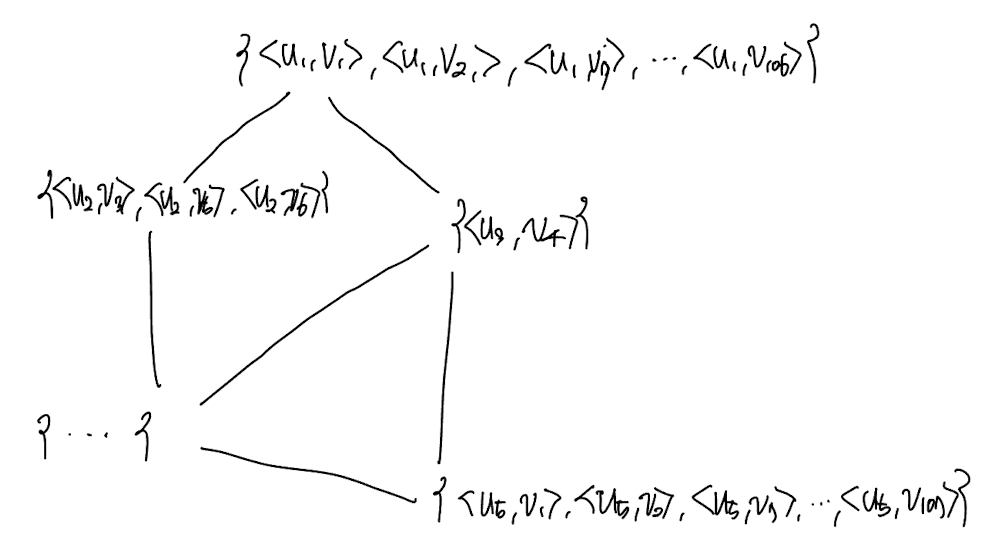 {<u₁,v₁>, <u₁,v₂,>, <u₁,v₃>, ..., <u₁,v₁₀₅>}
{<u₂,v₃>, <u₂,v₅>, <u₂,v₅>}
{<u₃,v₄>}
{ ... }
{<u₅,v₁>, <u₅,v₂>, <u₅,v₃>, ..., <u₅,v₁₀₃>}